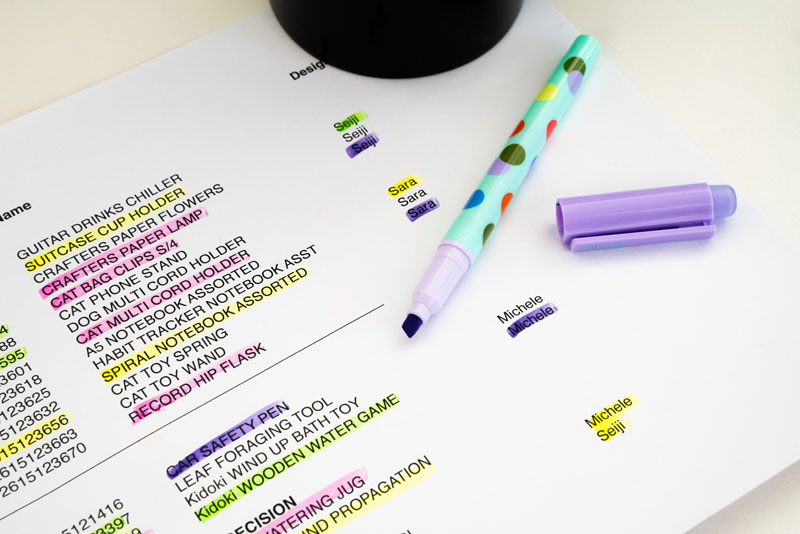 Name
GUITAR DRINKS CHILLER
SUITCASE CUP HOLDER
CRAFTERS PAPER FLOWERS
CRAFTERS PAPER LAMP
CAT BAG CLIPS S/4
CAT PHONE STAND
DOG MULTI CORD HOLDER
CAT MULTI CORD HOLDER
A5 NOTEBOOK ASSORTED
HABIT TRACKER NOTEBOOK ASST
SPIRAL NOTEBOOK ASSORTED
CAT TOY SPRING
CAT TOY WAND
RECORD HIP FLASK
4
88
595
3601
23618
5123625
15123632
615123656
2615123663
2615123670
CAR SAFETY PEN
LEAF FORAGING TOOL
Kidoki WIND UP BATH TOY
Kidoki WOODEN WATER GAME
5121416
23397
ECISION
WATERING JUG
ND PROPAGATION
Design
Seiji
Seiji
Seiji
Sara
Sara
Sara
Michele
Michele
Michele
Seiji